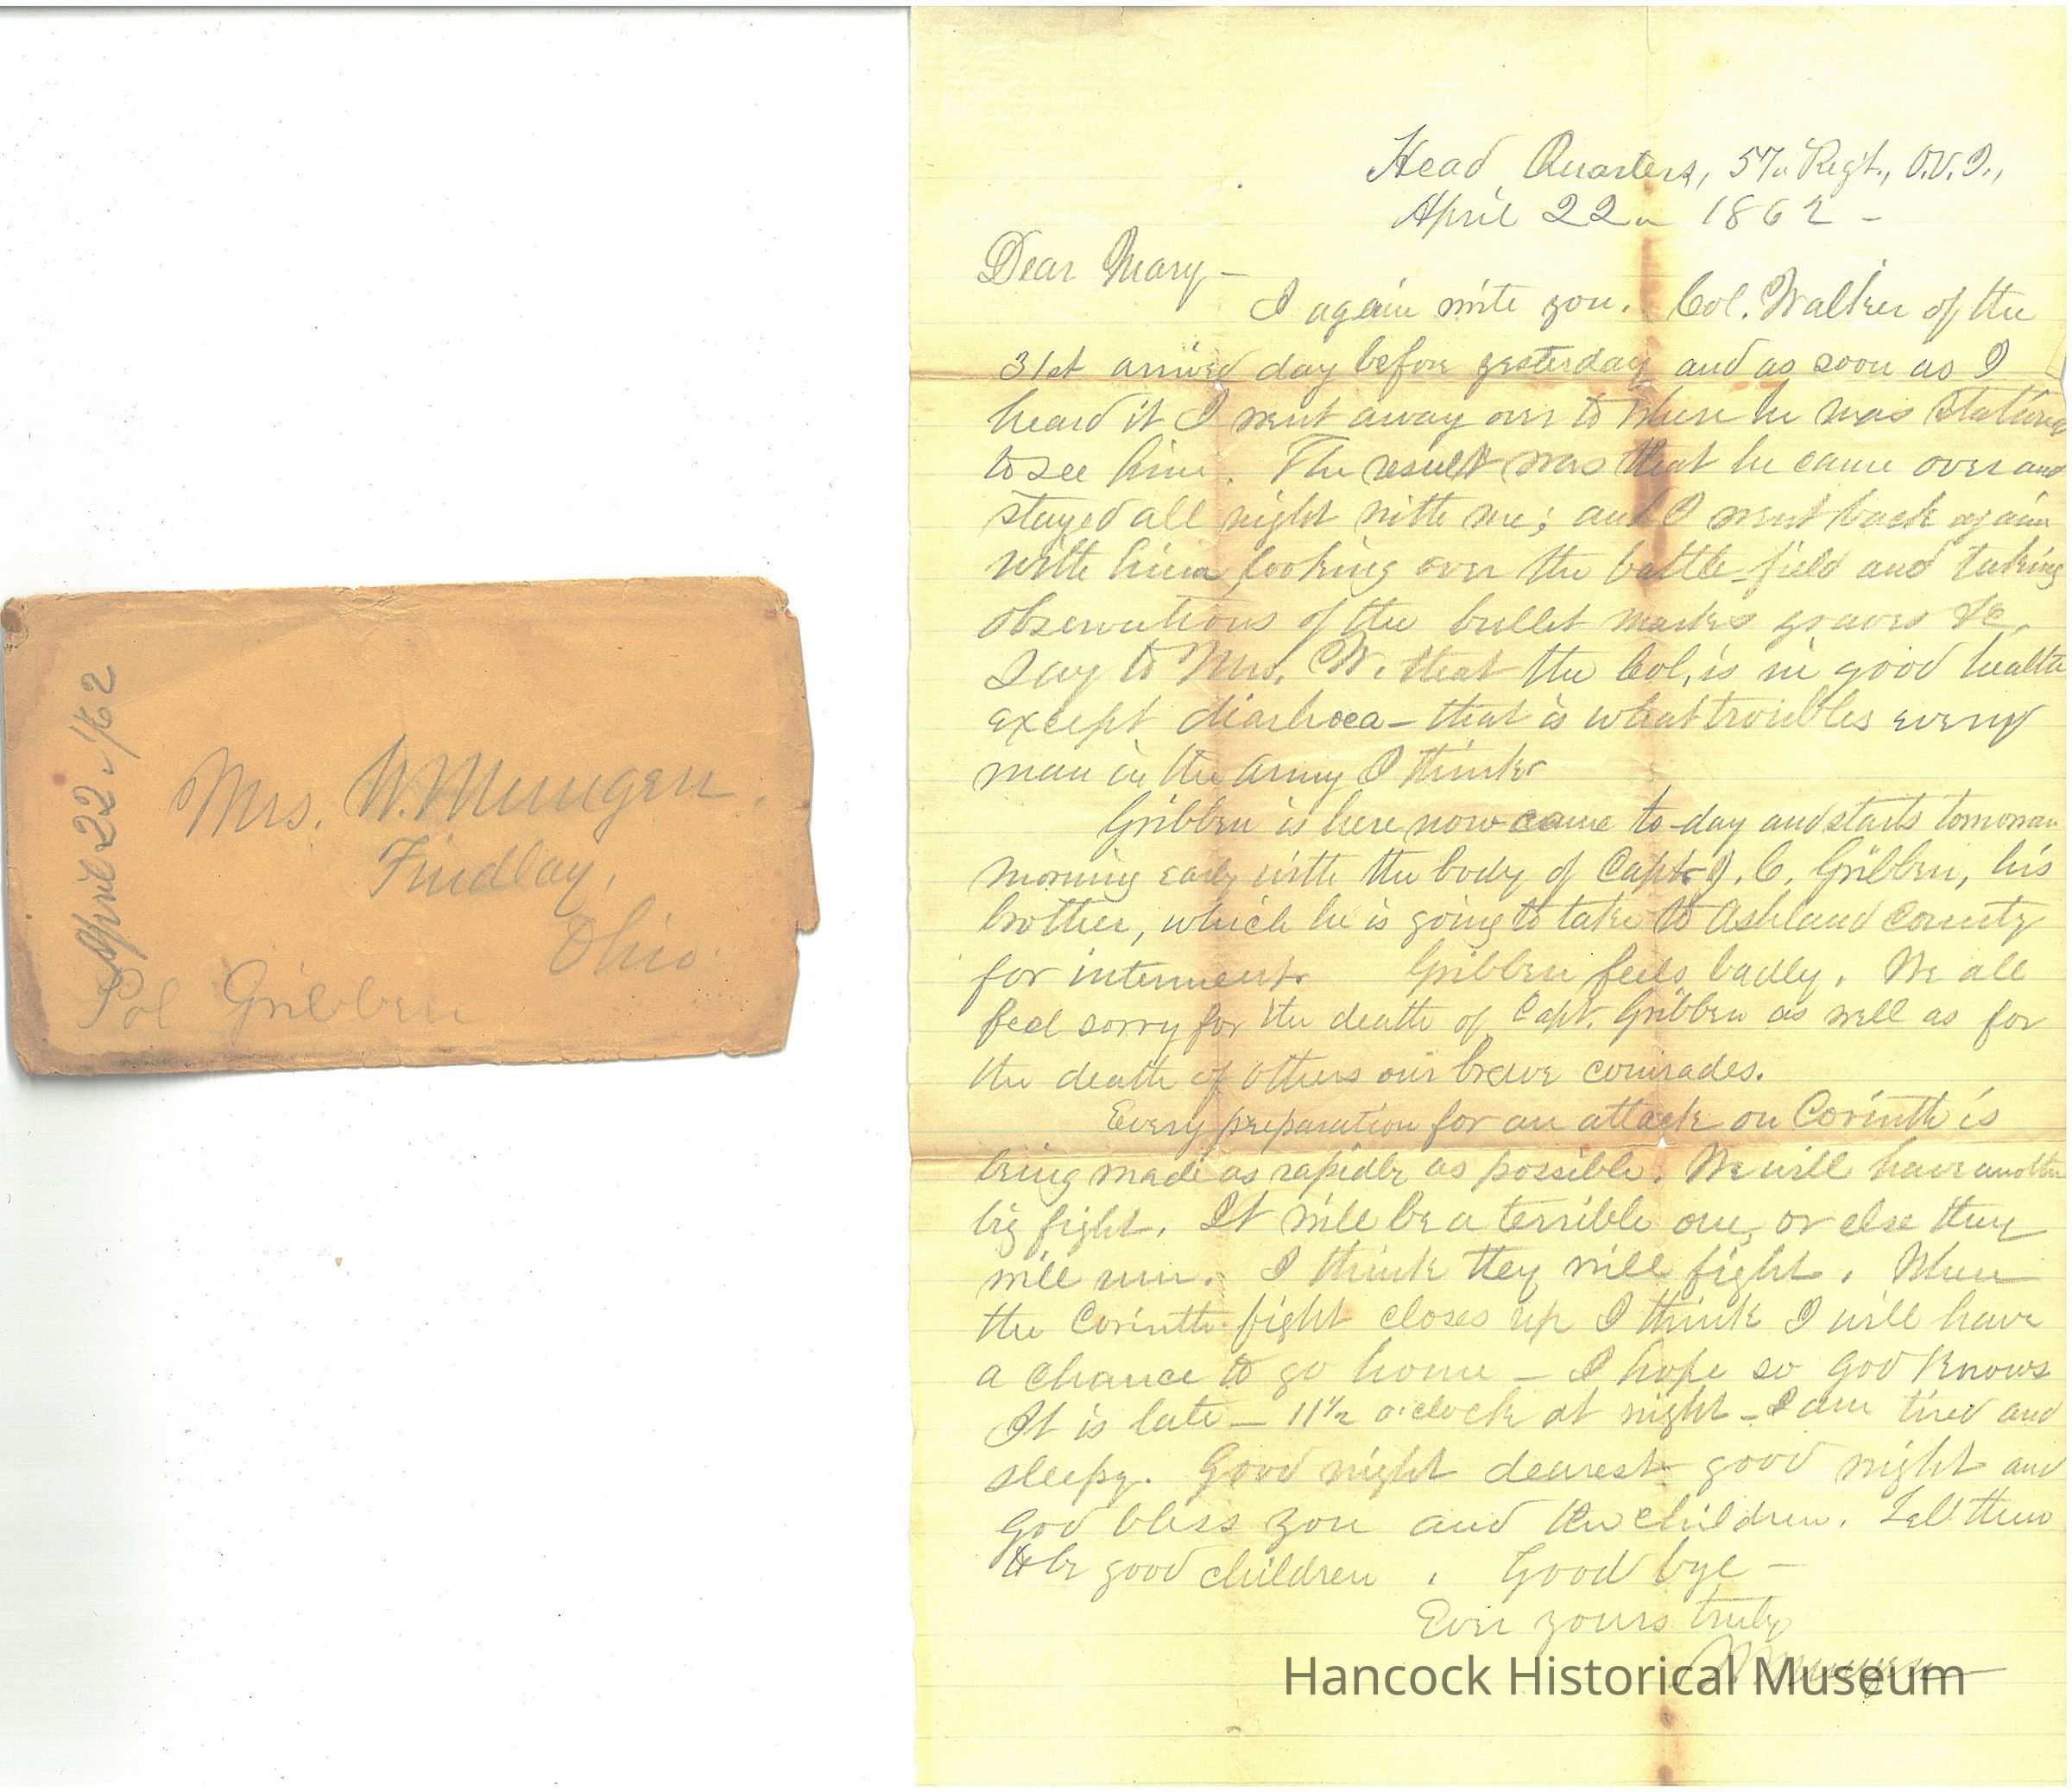 April 22. /62
Mrs. W. Mungen.
Findlay,
Ohio.
Pol Gribben
Head Quarters, 57th Regt., O.V.I.,
April 22n 1862 -
Dear Mary -
I again write you. Col. Walker of the
31st arrived day before yesterday and as soon as I
heard it I went away over to where he was stationed
to see him. The result was that he came over and
stayed all night with me; and I went back again
with him looking over the battle-field and taking
observations of the bullet marks graves &c.
Say to Mrs. W. that the Col. is in good health
except diarhoea - that is what troubles every
man in the army I think
Gribben is here now came to-day and starts tomorrow
morning early with the body of Capt. J. C. Gribben, his
brother, which he is going to take to Ashland County
for interment. Gribben feels badly. We all
feel sorry for the death of Capt. Gribben as well as for
the death of others our brave comrades.
Every preparation for an attack on Corinth is
being made as rapidly as possible. We will have another
big fight. It will be a terrible one, or else they
will run. I think they will fight. When
the Corinth fight closes up I think I will have
a chance to go home - I hope so God knows
It is late - 11½ o'clock at night - I am tired and
sleepy. Good night dearest good night and
God bless you and the children. Tell them
to be good children. Good bye -
Ever yours truly
W Mungen
Hancock Historical Museum